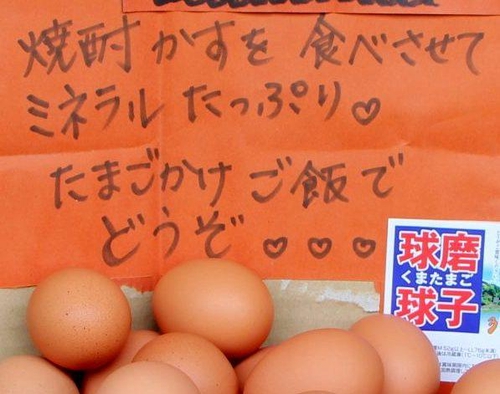 焼酎かすを食べさせて
ミネラルたっぷり♡
たまごかけご飯で
どうぞ♡♡♡
球磨
くまたまご
球子